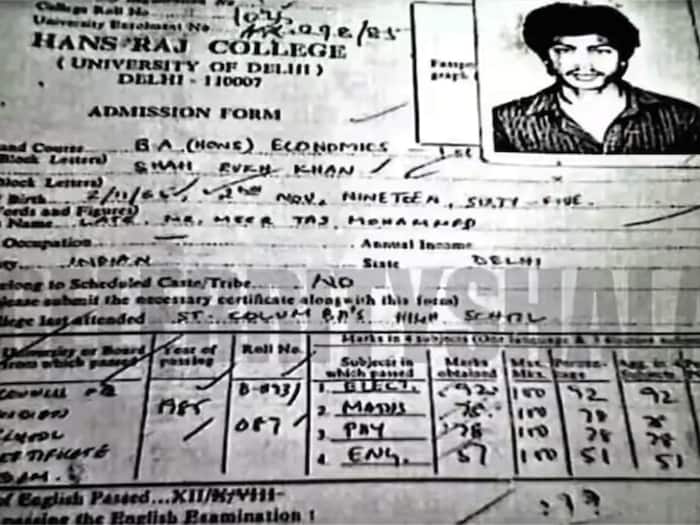 College Roll No
University Enrolment No.
HANS RAJ COLLEGE
( UNIVERSITY OF DELHI )
DELHI - 110007
ADMISSION FORM
and Course B.A (HONS) ECONOMICS
Block Letters) SHAH RUKH KHAN
Block Letters)
Birth 2/11/65, 2nd NOV, NINETEEN, SIXTY-FIVE.
Words and Figures)
Name LATE MR. MEER TAJ MOHAMMED
Occupation Annual Income
INDIAN State DELHI
elong to Scheduled Caste/Tribe NO
lease submit the necessary certificate along with this form)
lege last attended ST. COLUMBA'S HIGH SCHOOL
Marks in 4 subjects (One language &
University or Board from which passed Year of passing Roll No. Subject in which passed Marks obtained Max. Mks.
COUNCIL 1985 B-873/ 087 1 ELECT. 92 100 92 92
2 MATHS 78 100 78 78
SCHOOL 3 PHY 78 100 78 78
CERTIFICATE 4 ENG. 51 100 51 51
EXAM.
of English Passed...XII/X/VIII-
passing the English Examination :